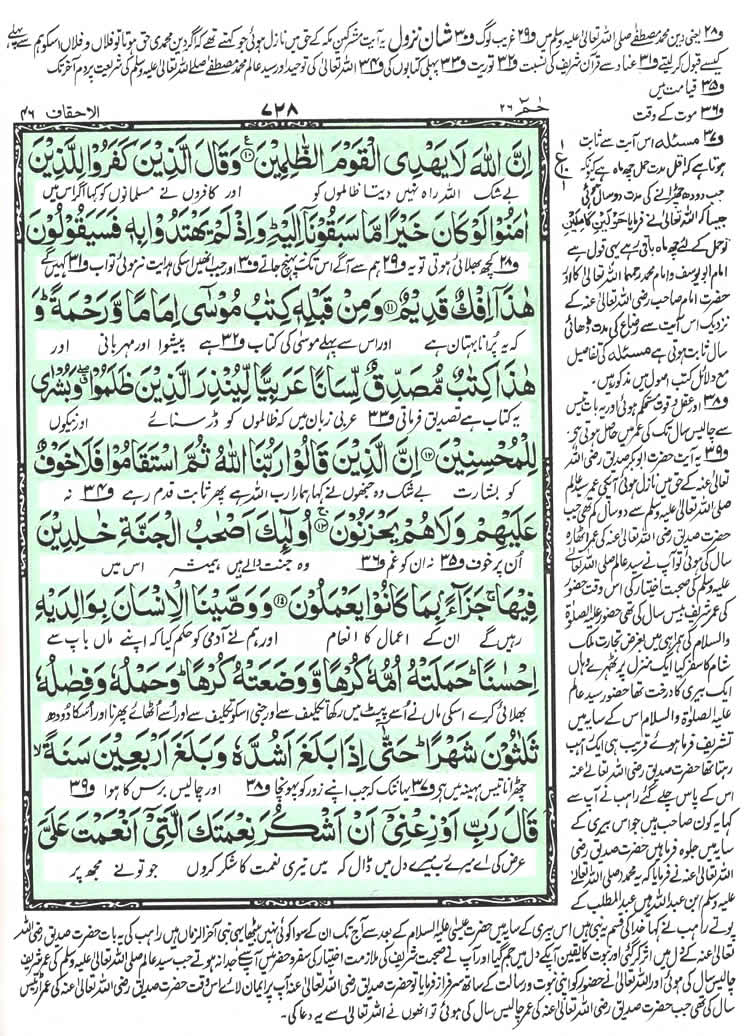 ف۲۸ یعنی دین محمد مصطفٰے صلی اللہ تعالیٰ علیہ وسلم میں ف۲۹ غریب لوگ ف۳۰ شان نزول یہ آیت مشرکین مکہ کے حق میں نازل ہوئی جو کہتے تھے کہ اگر دین محمدی حق ہوتا تو فلاں و فلاں اسکو ہم سے پہلے
کیسے قبول کر لیتے ف۳۱ عناد سے قرآن شریف کی نسبت ف۳۲ توریت ف۳۳ پہلی کتابوں کی ف۳۴ اللہ تعالیٰ کی توحید اور سید عالم محمد مصطفٰے صلی اللہ تعالیٰ علیہ وسلم کی شریعت پر دم آخر تک
ف۳۵ قیامت میں
ف۳۶ موت کے وقت
حٰمٓ ۲۶
۷۲۸
الاحقاف ۴۶
اِنَّ اللّٰهَ لَا یَهْدِی الْقَوْمَ الظّٰلِمِیْنَ ﴿۱۰﴾ وَقَالَ الَّذِیْنَ كَفَرُوْا لِلَّذِیْنَ
بے شک اللہ راہ نہیں دیتا ظالموں کو اور کافروں نے مسلمانوں کو کہا اگر اس میں
اٰمَنُوْا لَوْ كَانَ خَیْرًا مَّا سَبَقُوْنَاۤ اِلَیْهِؕ وَاِذْ لَمْ یَهْتَدُوْا بِهٖ فَسَیَقُوْلُوْنَ
ف۲۸ کچھ بھلائی ہوتی تو یہ ف۲۹ ہم سے آگے اس تک نہ پہنچ جاتے ف۳۰ اور جب انھیں اسکی ہدایت نہ ہوئی تو اب ف۳۱ کہیں گے
هٰذَاۤ اِفْكٌ قَدِیْمٌ ﴿۱۱﴾ وَمِنْ قَبْلِهٖ كِتٰبُ مُوْسٰۤی اِمَامًا وَّرَحْمَةًؕ وَ
کہ یہ پُرانا بہتان ہے اور اس سے پہلے موسیٰ کی کتاب ف۳۲ ہے پیشوا اور مہربانی اور
هٰذَا كِتٰبٌ مُّصَدِّقٌ لِّسَانًا عَرَبِیًّا لِّیُنْذِرَ الَّذِیْنَ ظَلَمُوْا ۖ وَبُشْرٰی
یہ کتاب ہے تصدیق فرماتی ف۳۳ عربی زبان میں کہ ظالموں کو ڈر سنائے اور نیکوں
لِلْمُحْسِنِیْنَ ﴿۱۲﴾ اِنَّ الَّذِیْنَ قَالُوْا رَبُّنَا اللّٰهُ ثُمَّ اسْتَقَامُوْا فَلَا خَوْفٌ
کو بشارت بے شک وہ جنھوں نے کہا ہمارا رب اللہ ہے پھر ثابت قدم رہے ف۳۴ نہ
عَلَیْهِمْ وَلَا هُمْ یَحْزَنُوْنَ ﴿۱۳﴾ اُولٰٓئِكَ اَصْحٰبُ الْجَنَّةِ خٰلِدِیْنَ
اُن پر خوف ف۳۵ نہ ان کو غم ف۳۶ وہ جنت والے ہیں ہمیشہ اس میں
فِیْهَاۚ جَزَآءًۢ بِمَا كَانُوْا یَعْمَلُوْنَ ﴿۱۴﴾ وَوَصَّیْنَا الْاِنْسَانَ بِوَالِدَیْهِ
رہیں گے ان کے اعمال کا انعام اور ہم نے آدمی کو حکم کیا کہ اپنے ماں باپ سے
اِحْسٰنًاؕ حَمَلَتْهُ اُمُّهٗ كُرْهًا وَّوَضَعَتْهُ كُرْهًاؕ وَحَمْلُهٗ وَفِصٰلُهٗ
بھلائی کرے اسکی ماں نے اُسے پیٹ میں رکھا تکلیف سے اور جنی اسکو تکلیف سے اور اُسے اُٹھائے پھرنا اور اُسکا دودھ
ثَلٰثُوْنَ شَهْرًاؕ حَتّٰۤی اِذَا بَلَغَ اَشُدَّهٗ وَبَلَغَ اَرْبَعِیْنَ سَنَةًۙ
چھڑانا تیس مہینہ میں ہے ف۳۷ یہانتک کہ جب اپنے زور کو پہونچا ف۳۸ اور چالیس برس کا ہوا ف۳۹
قَالَ رَبِّ اَوْزِعْنِیْۤ اَنْ اَشْكُرَ نِعْمَتَكَ الَّتِیْۤ اَنْعَمْتَ عَلَیَّ
عرض کی اے میرے رب میرے دل میں ڈال کہ میں تیری نعمت کا شکر کروں جو تو نے مجھ پر
ف۳۷ مسئلہ اس آیت سے ثابت
ہوتا ہے کہ اقل مدت حمل چھ ماہ ہے کیونکہ
جب دودھ چھڑانے کی مدت دو سال ہوئی
جیسا کہ اللہ تعالیٰ نے فرمایا حَوْلَیْنِ كَامِلَیْنِ
تو حمل کے لئے چھ ماہ باقی رہے یہی قول ہے
امام ابو یوسف و امام محمد رحمہما اللہ تعالیٰ کا اور
حضرت امام صاحب رضی اللہ تعالیٰ عنہ کے
نزدیک اس آیت سے رضاع کی مدت ڈھائی
سال ثابت ہوتی ہے مسئلہ کی تفاصیل
مع دلائل کتب اصول میں مذکور ہیں۔
ف۳۸ اور عقل و قوت مستحکم ہوئی اور یہ بات تیس
سے چالیس سال تک کی عمر میں حاصل ہوتی ہے۔
ف۳۹ یہ آیت حضرت ابوبکر صدیق رضی اللہ
تعالیٰ عنہ کے حق میں نازل ہوئی آپکی عمر سید عالم
صلی اللہ تعالیٰ علیہ وسلم سے دو سال کم تھی جب
حضرت صدیق رضی اللہ تعالیٰ عنہ کی عمر اٹھارہ
سال کی ہوئی تو آپ نے سید عالم صلی اللہ تعالیٰ
علیہ وسلم کی صحبت اختیار کی اس وقت حضور
کی عمر شریف بیس سال کی تھی حضور علیہ الصلوٰۃ
والسلام کی ہمراہی میں بغرض تجارت ملک
شام کا سفر کیا ایک منزل پر ٹھہرے وہاں
ایک بیری کا درخت تھا حضور سید عالم
علیہ الصلوٰۃ والسلام اس کے سایہ میں
تشریف فرما ہوئے قریب ہی ایک راہب
رہتا تھا حضرت صدیق رضی اللہ تعالیٰ عنہ
اس کے پاس چلے گئے راہب نے آپ سے
کہا یہ کون صاحب ہیں جو اس بیری کے
سایہ میں جلوہ فرما ہیں حضرت صدیق رضی
اللہ تعالیٰ عنہ نے فرمایا کہ یہ محمد (صلی اللہ تعالیٰ
علیہ وسلم) ابن عبد اللہ ہیں عبد المطلب کے
پوتے راہب نے کہا خدا کی قسم یہ نبی ہیں اس بیری کے سایہ میں حضرت عیسیٰ علیہ السلام کے بعد سے آج تک ان کے سوا کوئی نہیں بیٹھا یہی نبی آخر الزماں ہیں راہب کی یہ بات حضرت صدیق رضی اللہ
تعالیٰ عنہ کے دل میں اثر کر گئی اور نبوت کا یقین آپکے دل میں جم گیا اور آپ نے صحبت شریف کی ملازمت اختیار کی سفر و حضر میں آپ سے جدا نہ ہوتے جب سید عالم صلی اللہ تعالیٰ علیہ وسلم کی عمر شریف
چالیس سال کی ہوئی اور اللہ تعالیٰ نے حضور کو اپنی نبوت و رسالت کے ساتھ سرفراز فرمایا تو حضرت صدیق رضی اللہ تعالیٰ عنہ آپ پر ایمان لائے اس وقت حضرت صدیق رضی اللہ تعالیٰ عنہ کی عمر اڑتیس سال
کی تھی جب حضرت صدیق رضی اللہ تعالیٰ عنہ کی عمر چالیس سال کی ہوئی تو انھوں نے اللہ تعالیٰ سے یہ دعا کی۔